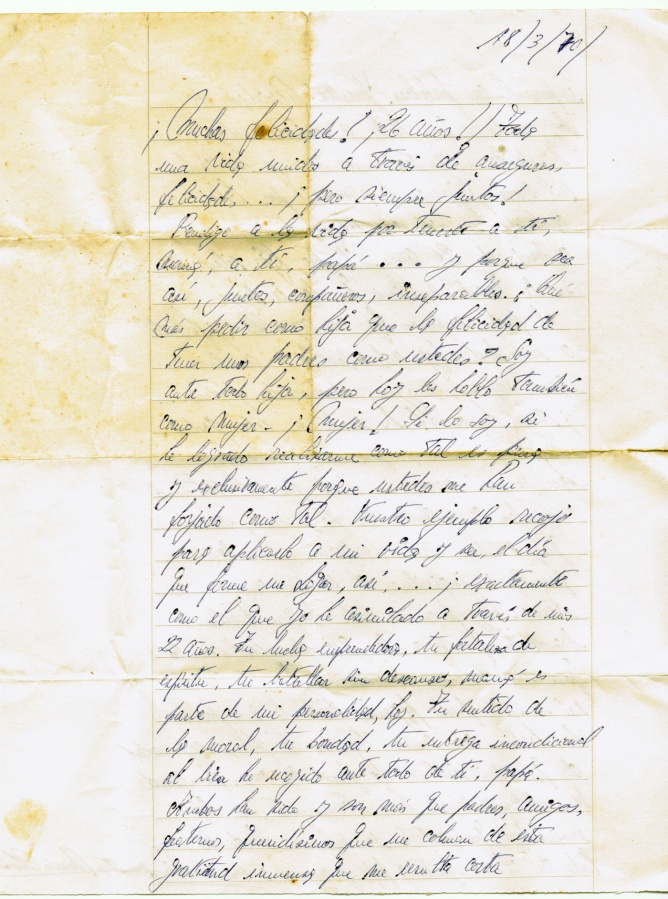 18/3/70/
¡Muchas felicidades! ¡26 años!! Toda
una vida unidos a través de amarguras,
felicidad... ¡pero siempre juntos!
Bendigo a la vida por tenerte a ti,
mamá, a ti, papá... y porque sea
así, juntos, compañeros, inseparables. ¿Qué
más pedir como hija que la felicidad de
tener unos padres como ustedes? Soy
ante todo hija, pero hoy les hablo también
como mujer. ¡Mujer! Si lo soy, si
he logrado realizarme como tal es única
y exclusivamente porque ustedes me han
forjado como tal. Vuestro ejemplo recojo
para aplicarlo a mi vida y ser, el día
que forme mi hogar, así,... ¡exactamente
como el que yo he asimilado a través de mis
22 años. Tu lucha emprendedora, tu fortaleza de
espíritu, tu batallar sin descanso, mamá es
parte de mi personalidad, hoy. Tu sentido de
la moral, tu bondad, tu entrega incondicional
al bien he recogido ante todo de ti, papá.
Ambos han sido y son más que padres, amigos,
fraternos, queridísimos que me colman de esta
gratitud inmensa que me resulta corta